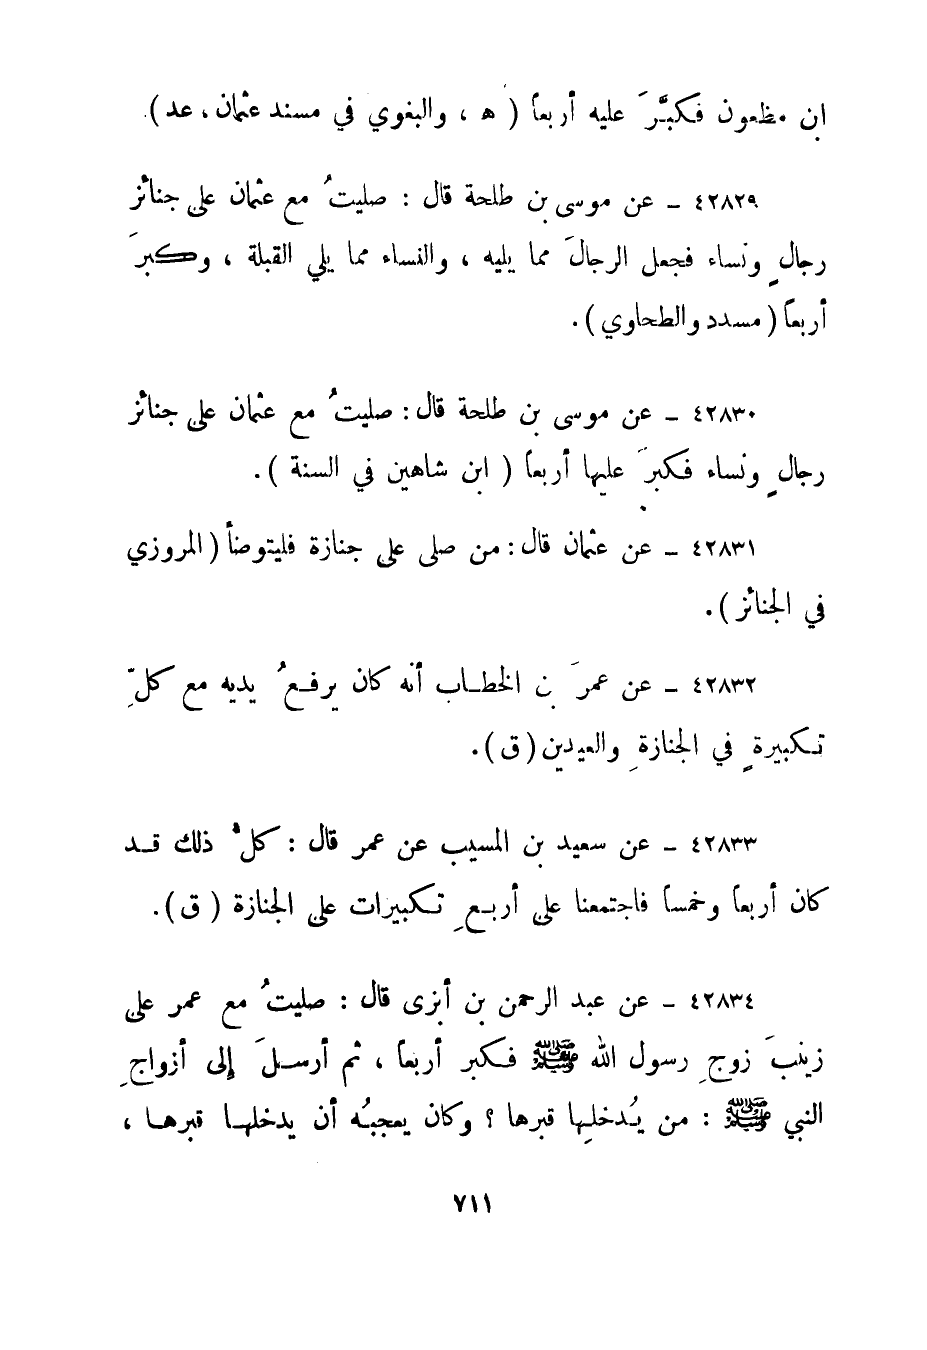 ابن مظعون فكبَّرَ عليه أربعاً ( ه ، والبغوي في مسند عثمان ، عد ) .
٤٢٨٢٩ ـ عن موسى بن طلحة قال : صليتُ مع عثمان على جنائز
رجالٍ ونساء فجعل الرجالَ مما يليه ، والنساء مما يلي القبلة ، وكبرَ
أربعاً ( مسدد والطحاوي ) .
٤٢٨٣٠ ـ عن موسى بن طلحة قال : صليتُ مع عثمان على جنائز
رجالٍ ونساء فكبرَ عليها أربعاً ( ابن شاهين في السنة ) .
٤٢٨٣١ ـ عن عثمان قال : من صلى على جنازة فليتوضأ ( المروزي
في الجنائز ) .
٤٢٨٣٢ ـ عن عمرَ بن الخطاب أنه كان يرفعُ يديه مع كلِّ
تكبيرةٍ في الجنازةِ والعيدين ( ق ) .
٤٢٨٣٣ ـ عن سعيد بن المسيب عن عمر قال : كلُّ ذلك قد
كان أربعاً وخمساً فاجتمعنا على أربعِ تكبيرات على الجنازة ( ق ) .
٤٢٨٣٤ ـ عن عبد الرحمن بن أبزى قال : صليتُ مع عمر على
زينبَ زوجِ رسول الله ﷺ فكبر أربعاً ، ثم أرسلَ إلى أزواجِ
النبي ﷺ : من يُدخلها قبرها ؟ وكان يعجبُه أن يدخلها قبرها ،
٧١١